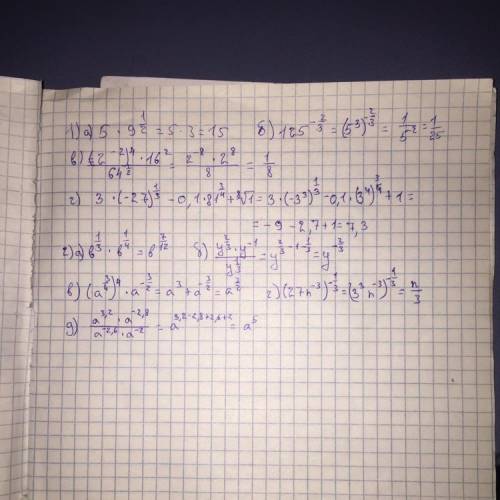 1) а) 5 · 9^{1/2} = 5 · 3 = 15   б) 125^{-2/3} = (5^3)^{-2/3} = 1/5^2 = 1/25
в) (2^{-2})^4 · 16^2 / 64^{1/2} = 2^{-8} · 2^8 / 8 = 1/8
г) 3 · (-27)^{1/3} - 0,1 · 81^{3/4} + ⁸√1 = 3 · (-3^3)^{1/3} - 0,1 · (3^4)^{3/4} + 1 =
= -9 - 2,7 + 1 = 7,3
2) а) в^{1/3} · в^{1/4} = в^{7/12}   б) y^{2/3} · y^{-1} / y^{1/3} = y^{2/3 - 1 - 1/3} = y^{-2/3}
в) (a^{3/4})^4 · a^{-3/2} = a^3 + a^{-3/2} = a^{3/2}   г) (27n^{-3})^{-1/3} = (3^3 n^{-3})^{-1/3} = n/3
д) a^{3,2} · a^{-2,8} / a^{-2,6} · a^{-2} = a^{3,2-2,8+2,6+2} = a^5